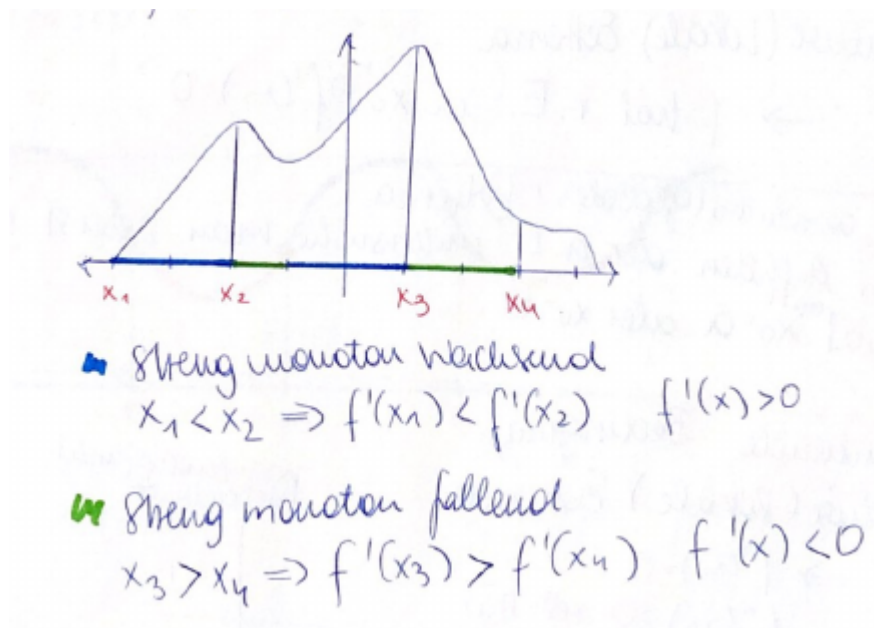 x₁ x₂ x₃ x₄
streng monoton wachsend
x₁ < x₂ ⇒ f'(x₁) < f'(x₂) f'(x) > 0
streng monoton fallend
x₃ > x₄ ⇒ f'(x₃) > f'(x₄) f'(x) < 0